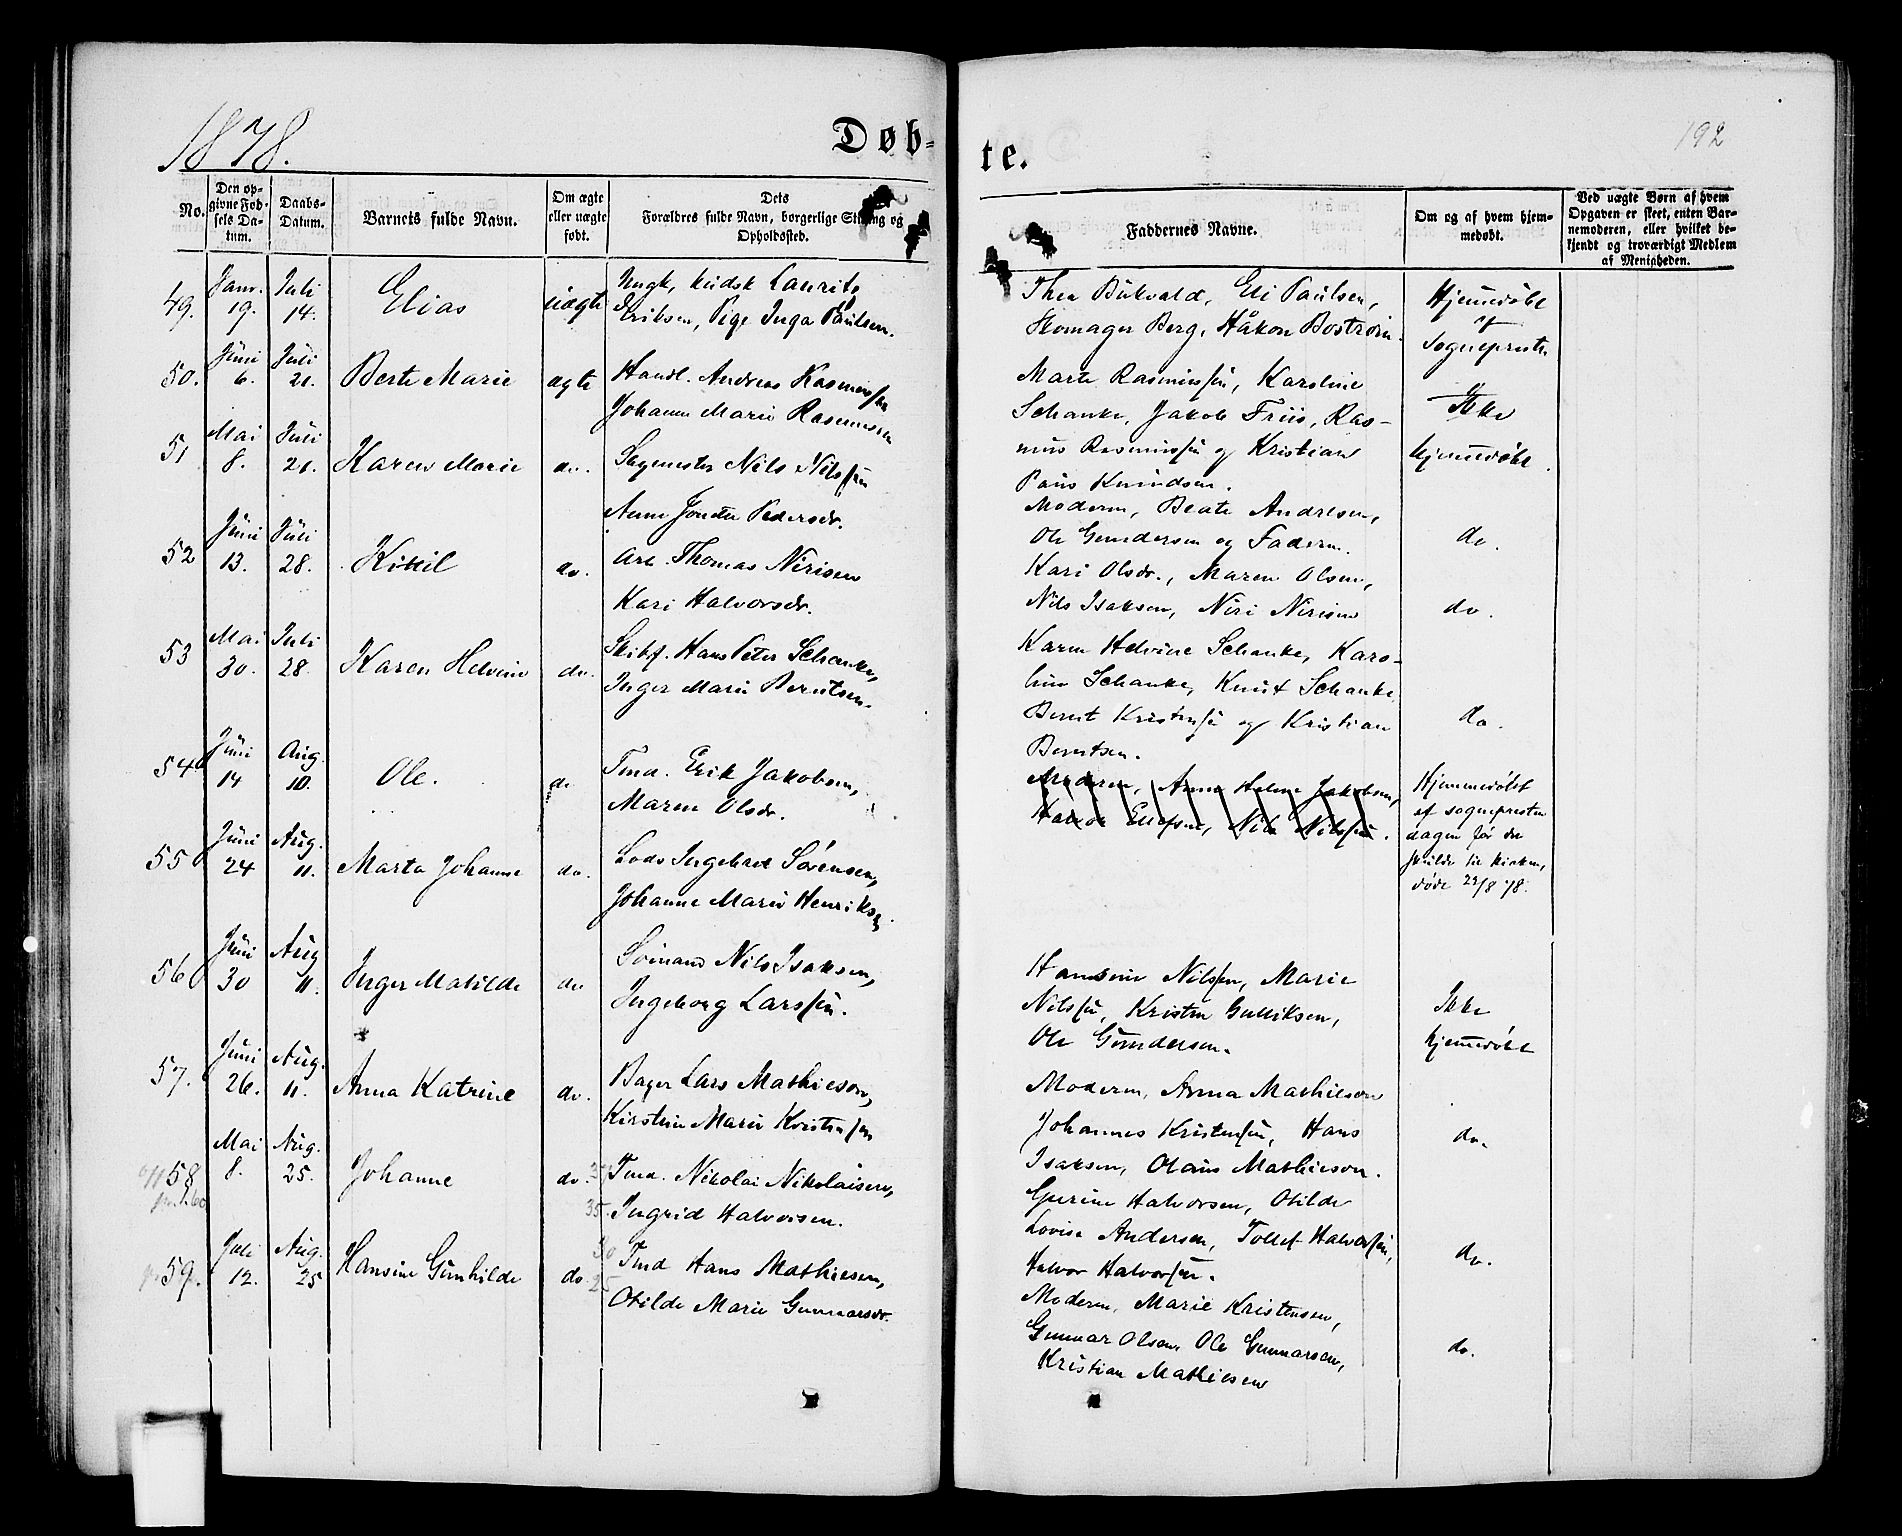 1878.
Døb-
te.
192
No.
Den op-
givne Fød-
sels Da-
tum.
Daabs-
Datum.
Barnets fulde Navn.
Om ægte
eller uægte
født.
Dets
Forældres fulde Navn, borgerlige Stilling og
Opholdssted.
Faddernes Navne.
Om og af hvem hjem-
medøbt.
Ved uægte Børn af hvem
Opgaven er skeet, enten Bar-
nemoderen, eller hvilket be-
kjendt og troværdigt Medlem
af Menigheden.
49. Janr. 19. Juli 14. Elias uægte Ungk. kudsk Laurits
Eriksen, Pige Inga Paulsen.
Thea Bukvald, Eli Paulsen,
Skomager Berg, Håkon Bostrøm.
Hjemmedøbt
af
Sognepresten
50. Juni 6. Juli 21. Berte Marie ægte Handl. Andreas Rasmussen
Johanne Marie Rasmussen
Marte Rasmussen, Karoline
Schanke, Jakob Friis, Ras-
mus Rasmussen og Kristian
Paus Knudsen.
Ikke
hjemmedøbt.
51 Mai 8. Juli 21. Karen Marie do. Sagmester Nils Nilssen
Anne Jonette Pedersdr.
Moderen, Beate Andresen,
Ole Gundersen og Faderen.
do.
52 Juni 13. Juli 28. Kittil do. Arb. Thomas Nirisen
Kari Halvorsdr.
Kari Olsdr., Maren Olsen,
Nils Isaksen, Niri Nirisen
do.
53 Mai 30. Juli 28. Karen Helvine do. Skibsf. Hans Peter Schanke,
Inger Marie Berntsen.
Karen Helvine Schanke, Karo-
line Schanke, Knut Schanke
Bernt Kristensen og Kristian
Berntsen.
do.
54 Juni 14 Aug. 10. Ole. do Tmd. Erik Jakobsen,
Maren Olsdr.
Moderen, Anne Helene Jakobsen,
Ellefsen, Nils Nilssen.
Hjemmedøbt
af sognepresten
dagen før de
skulde til kirken,
døde 29/8 78.
55 Juni 24 Aug. 11. Marta Johanne do. Lods Ingebret Sørensen,
Johanne Marie Henriksen.
56 Juni 30 Aug 11. Inger Matilde do Sømand Nils Isaksen,
Ingeborg Larssen.
Hansine Nilssen, Marie
Nilssen, Kristen Gulliksen,
Ole Gundersen.
Ikke
hjemmedøbt
57. Juni 26. Aug. 11. Anna Katrine do. Bager Lars Mathiesen,
Kirstine Marie Kristensen
Moderen, Anna Mathiesen
Johannes Kristensen, Hans
Isaksen, Olaus Mathiesen.
do.
58 Mai 8. Aug. 25. Johanne do. Tmd. Nikolai Nikolaisen,
35. Ingrid Halvorsen.
Gurine Halvorsen, Otilde
Lovise Andersen, Tollef Halvorsen,
Halvor Halvorsen.
do.
59. Juli 12. Aug. 25 Hansine Gunhilde do. 30 Tmd Hans Mathiesen,
25 Otilde Marie Gunnarsdr.
Moderen, Marie Kristensen,
Gunnar Olsen, Ole Gunnarsen,
Kristian Mathiesen
do.